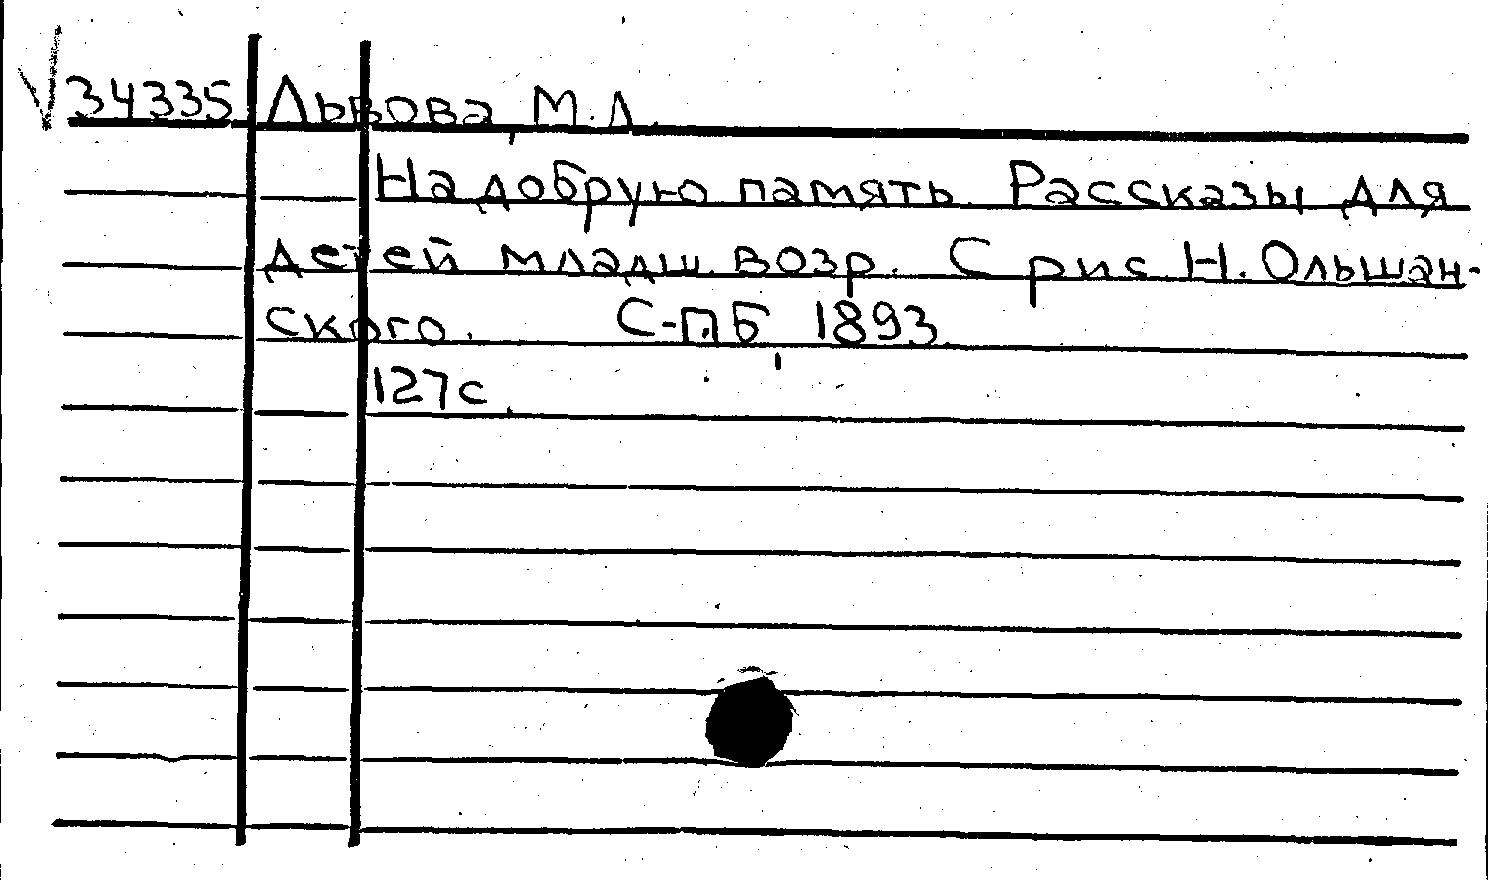 34335 Львова, М.Л.
На добрую память. Рассказы для
детей младш. возр. С рис Н. Ольшан-
ского. С-ПБ, 1893.
127с.